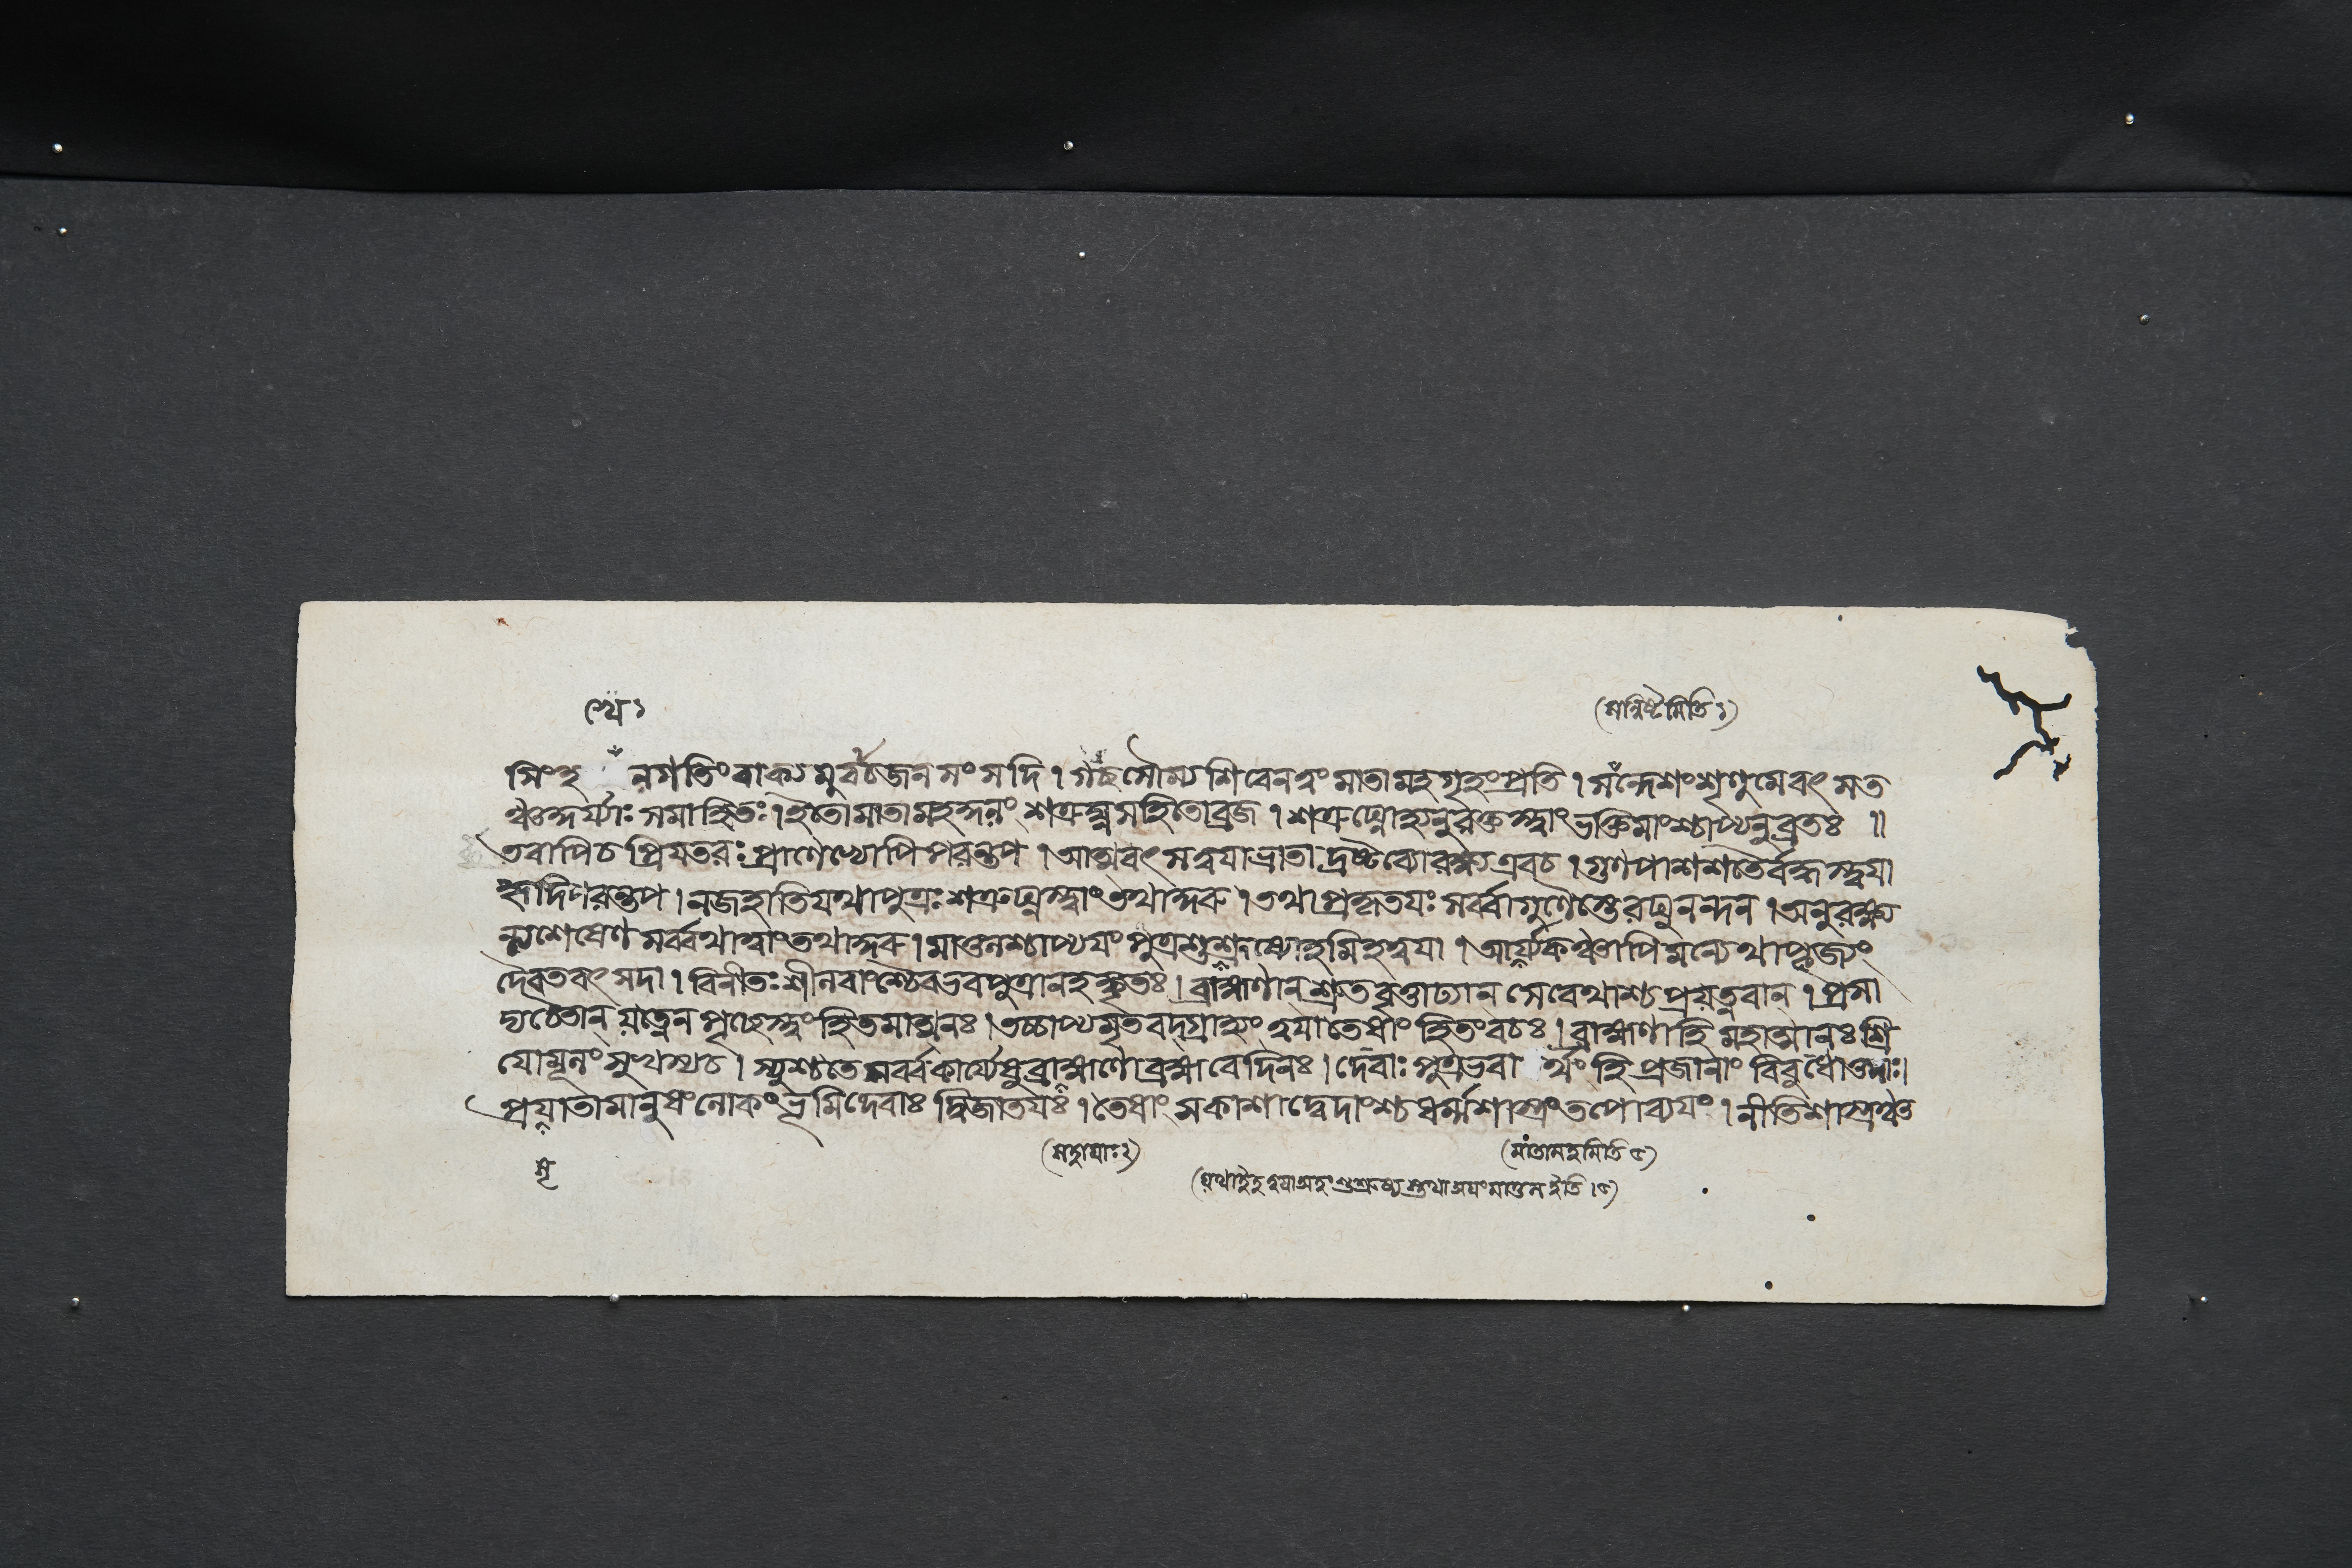 খে ১
(সন্দিষ্টমিতি ১)
সিংহ নগতিং বাক্য মুবাচ জন সংসদি । গচ্ছ সৌম্য শিবেন ত্বং মাতামহগৃহং প্রতি । সন্দেশং শৃণু মে বৎস ত
ঞ্চ কুর্য্যাঃ সমাহিতঃ । ইতো মাতামহকুলং শত্রুঘ্ন সহিতো ব্রজ । শত্রুঘ্নো হ্যনুরক্তস্ত্বাং ভক্তিমাংশ্চাপ্যনুব্রতঃ ॥
তবাপি চ প্রিয়তরঃ প্রাণেভ্যোপি পরন্তপ । আত্মবৎ স ত্বয়া ভ্রাতা দ্রষ্টব্যো রক্ষ্য এব চ । গুণপাশশতৈর্বদ্ধস্ত্বয়া
হৃদি পরন্তপ । ন জহাতি যথা পুত্রঃ শত্রুঘ্নস্ত্বাং তথা কুরু । তথা প্রকৃতয়ঃ সর্ব্বা গুণৈস্তে রঘুনন্দন । অনুরক্ষ্য
ন্ত্যশেষেণ সর্ব্বথা ত্বাং তথা কুরু । মাতুলশ্চাপ্যয়ং পুত্র শুশ্রূষ্যোহমিহ ত্বয়া । আর্য্যকঞ্চাপি মন্যেথা পূজ্যং
দৈবতবৎ সদা । বিনীতঃ শীলবাংশ্চৈব ভব পুত্রানহঙ্কৃতঃ । ব্রাহ্মণান্ শ্রুতবৃত্তাঢ্যান্ সেবেথাশ্চ প্রযত্নবান্ । প্রসা
দ্য চৈতান্ যত্নেন পৃচ্ছেস্ত্বং হিতমাত্মনঃ । তচ্চাপ্যমৃতবদ্গ্রাহ্যং ত্বয়া তেষাং হিতং বচঃ । ব্রাহ্মণা হি মহাত্মানঃ শ্রি
যো মূলং সুখস্য চ । স্পৃশ্যতে সর্ব্বকার্য্যেষু ব্রাহ্মণো ব্রহ্মবেদিনঃ । দেবাঃ পুত্র ভবা র্থং হি প্রজানাং বিবুধোত্তমাঃ ।
প্রয়াতা মানুষং লোকং ভূমিদেবাঃ দ্বিজাতয়ঃ । তেষাং সকাশাদ্বেদাংশ্চ ধর্ম্মশাস্ত্রং তপোব্যয়ং । নীতিশাস্ত্রঞ্চ ত
মৃ
(মাতামহমিতি ৫)
(যথা ইহ ত্বয়া অহং শুশ্রূষ্য স্তথা অয়ং মাতুল ইতি । ৫)